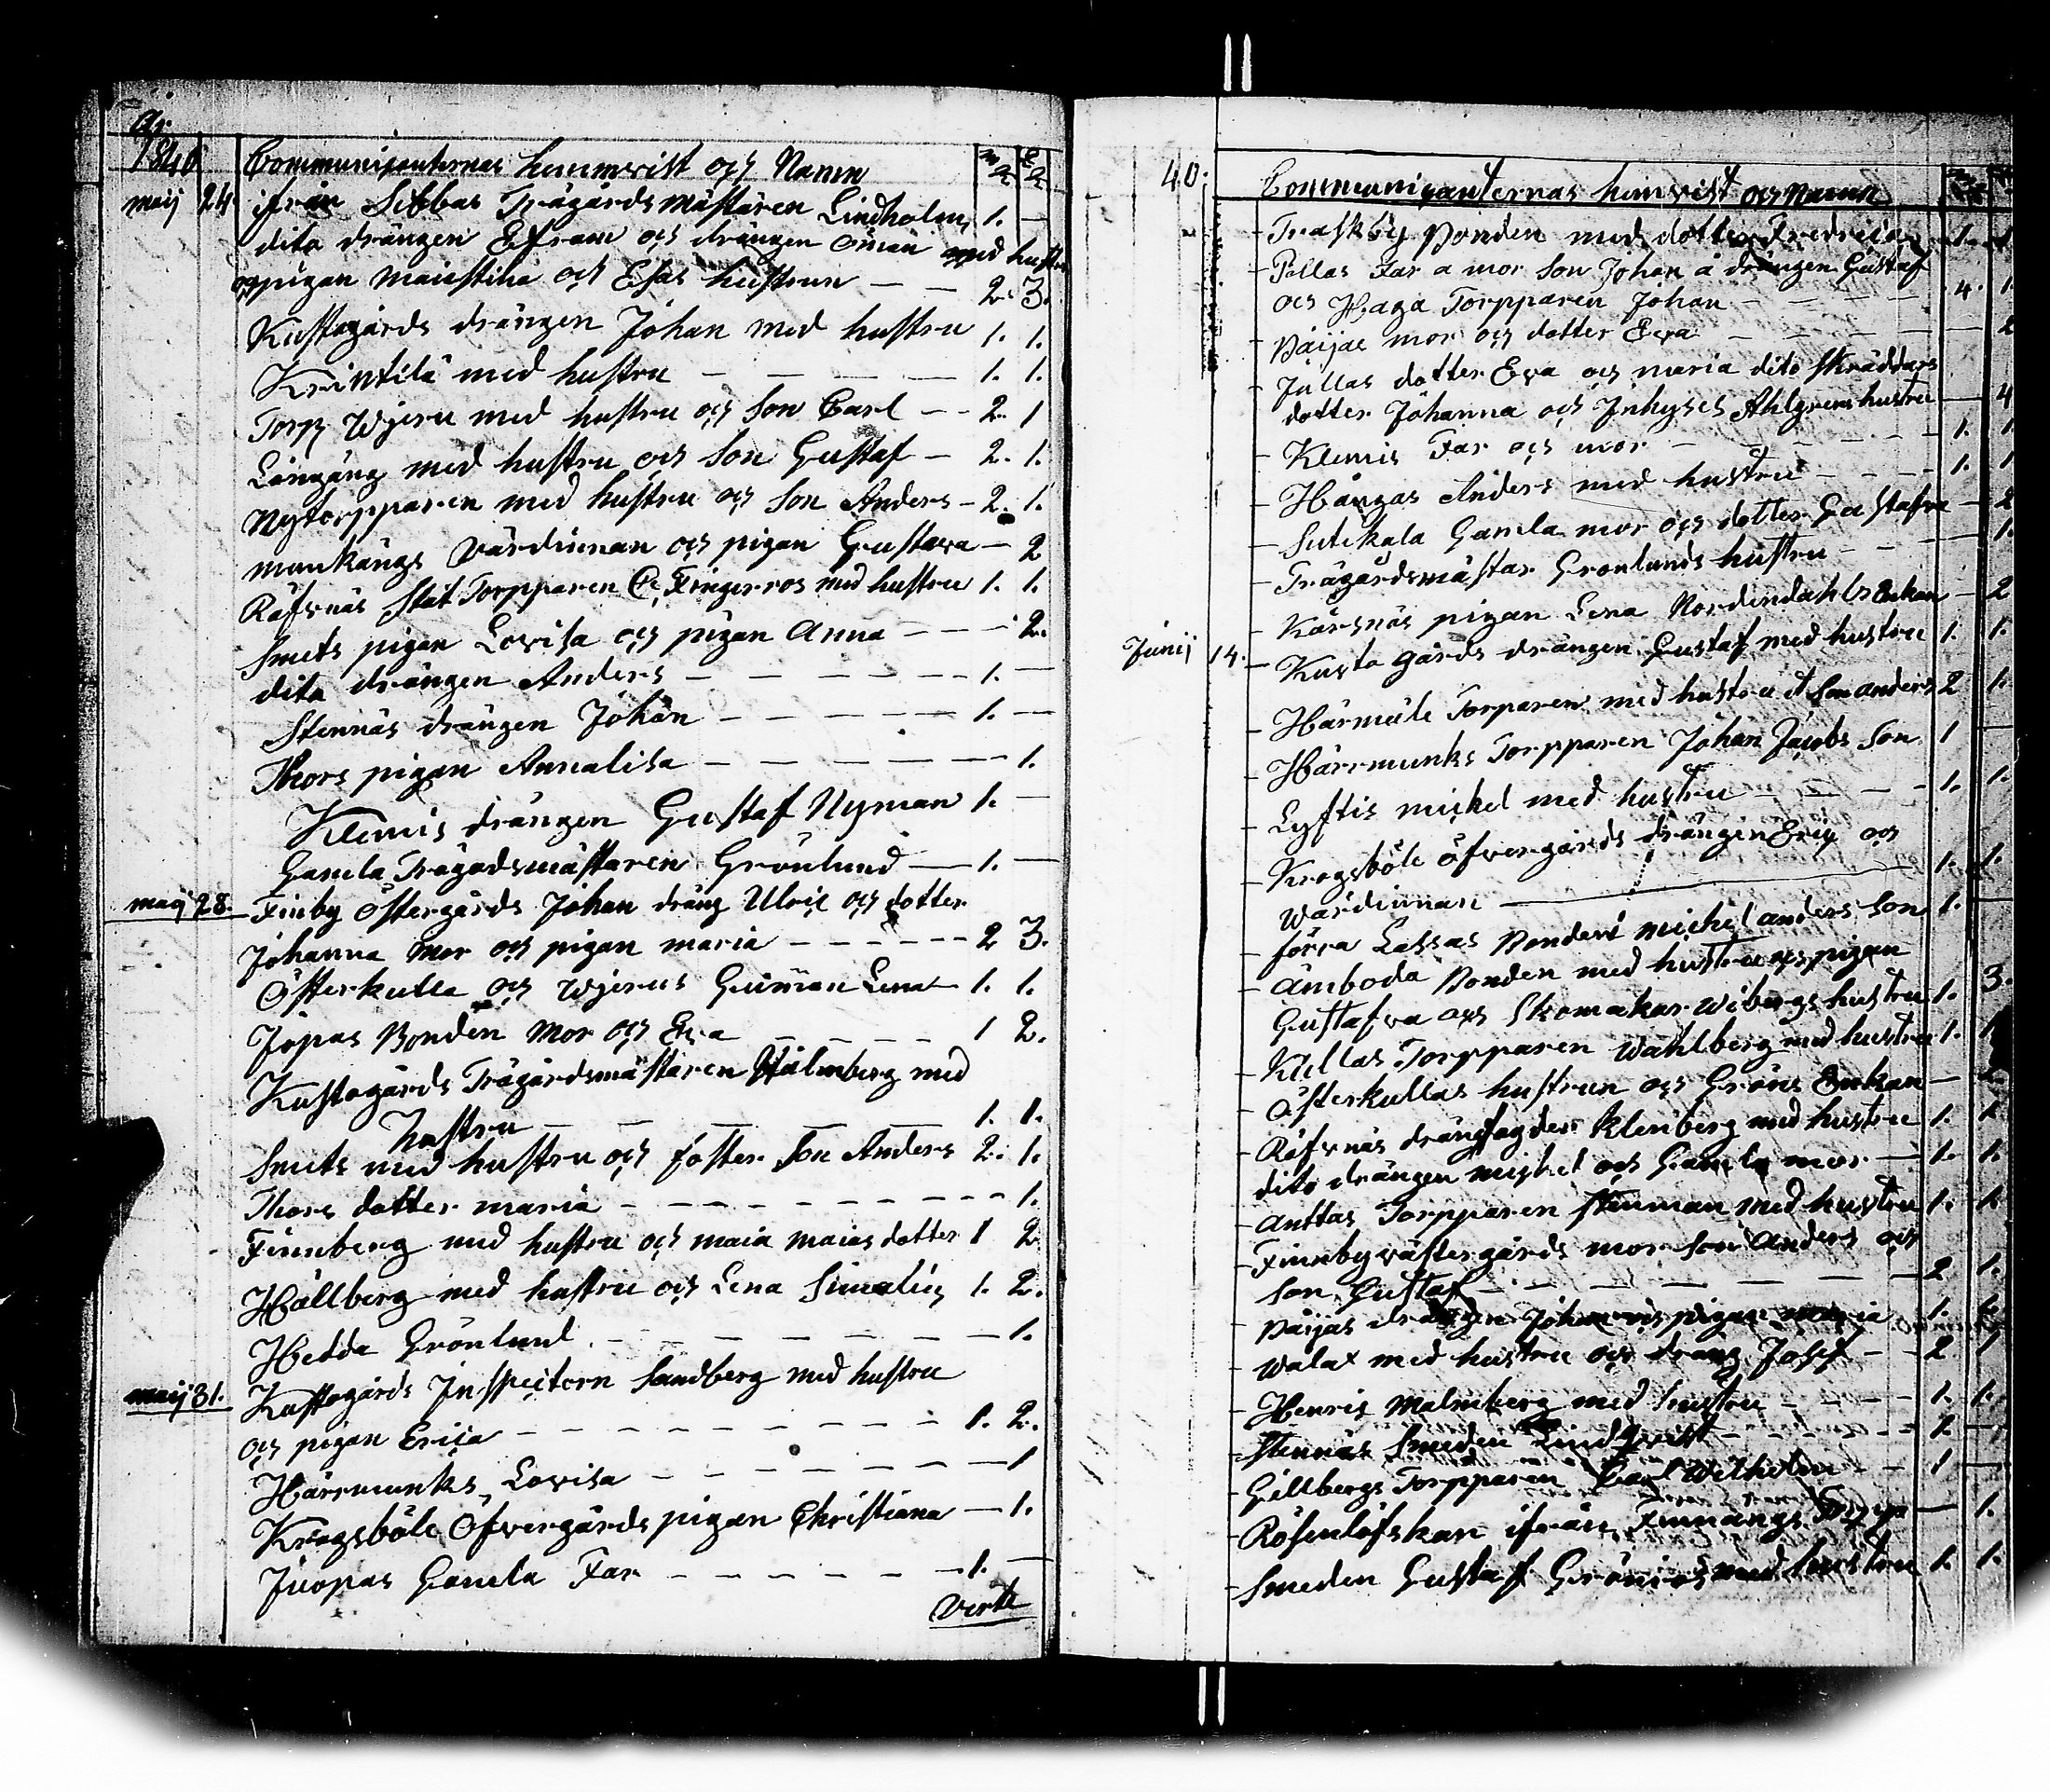 År
1840 Communicanternas hemvist och Namn m k q k
maij 24. ifrån Sibbas Trägårdsmästaren Lindholm 1. —
dito drängen Efram och drängen Öman med hustru
och pigan Maiastina och Esas hustrun — — 2. 3.
Kustogårds drängen Johan med hustru 1. 1.
Krintilä med hustru — — — — — 1. 1.
Torp Wjeru med hustru och Son Carl — — 2. 1
Långäng med hustru och Son Gustaf — 2. 1.
Nytorpparen med hustru och Son Anders — 2. 1.
munkängs Värdinnan och pigan Gustava — 2
Räfsnäs Stat Torpparen C. Fingerroos med hustru 1. 1.
Smets pigan Lovisa och pigan Anna — — — 2.
dito drängen Anders — — — — — — 1. —
Stennäs drängen Johan — — — — — — 1. —
Thors pigan Annalisa — — — — — — — 1.
Klemis drängen Gustaf Nyman 1. —
Gamla Trägadsmästaren Grönlund — 1. —
maij 28. Finby Östergårds Johan dräng Ulric och dotter
Johanna mor och pigan maria — — — — — — 2 3.
Österkulla och Wjerus Lena 1. 1.
Jopas Bonden mor och Eva — — — — 1 2.
Kustogårds Trägårdsmästaren Malmberg med
hustru — — — — — — 1. 1.
Smets med hustru och foster Son Anders 2. 1.
Thors dotter maria — — — — — — — — 1.
Finnberg med hustru och maia maias dotter 1 2
Hällberg med hustru och Lena 1. 2.
Hedda Grönlund — — — — — — — 1.
maij 31. Kustogårds Inspectorn Sandberg med hustru
och pigan Erica — — — — — — — — 1. 2.
Härrmunks Lovisa — — — — — — — 1
Krogsböle Öfvergårds pigan Christiana — 1.
Juopas Gamla Far — — — — — — 1. —
Vertte
40. Communicanternas hemvist och Namn
Traskby Bonden med dotter Fredrica 1. 1
Pellas Far a mor Son Johan a drängen Gustaf
och Haga Torpparen Johan — — — — 4. 1.
Päijae mor och dotter Eva — — — — — 2
Jullas dotter Eva och maria dito Skräddars
dotter Johanna och Inhyses Ahlgrens hustru — 4
Klemis Far och mor — — — — — — 1. 1
Hångas Anders med hustru — — — — 1. 1
Gamla mor och dotter Gustafva — 2
Trägårdsmästar Gronlunds hustru — — — 1.
Kärsnäs pigan Lena Nordendahls Enkan — 2
Junij 14. Kusto gårds drängen Gustaf med hustru 1. 1.
Härmeile Torparen med hustru et Son anders 2 1.
Härrmunks Torpparen Johan Jacobs Son 1 —
Lyftis michel med hustru — — — — — 1. 1.
Krogsböle Öfvergårds drängen Eric och
Wärdinnan — — — 1. 1.
förra Lassas Bonden michel anders Son 1. —
Åmboda Bonden med hustru och pigan
Gustafva och Skomakar Wibergs hustru 1. 3.
Kullas Torpparen Wahlberg med hustru 1. 1
Österkullas hustrun och Gröns Enkan — 2
Räfsnäs drängfogden Klenberg med hustru 1. 1
dito drängen michel och Gamla mor — 1. 1.
Anttas Torpparen Stenman med hustru 1. 1
Finnby västergårds mor Son Anders och
Son Gustaf — — — — — — — 2 1.
Päijas drängen Johan och pigan maria 1. 1.
Walax med hustru och dräng Josef — — 2 1
Henris Malmberg med hustru — — — 1. 1.
Stennäs Smeden Lindqvist — — — — — — 1 —
Gillbergs Torpparen Carl Wilhelm — — 1 —
Rosenlöfskan ifrån Finnängs Torp — 1.
Smeden Gustaf Grönroos med hustru 1. 1.